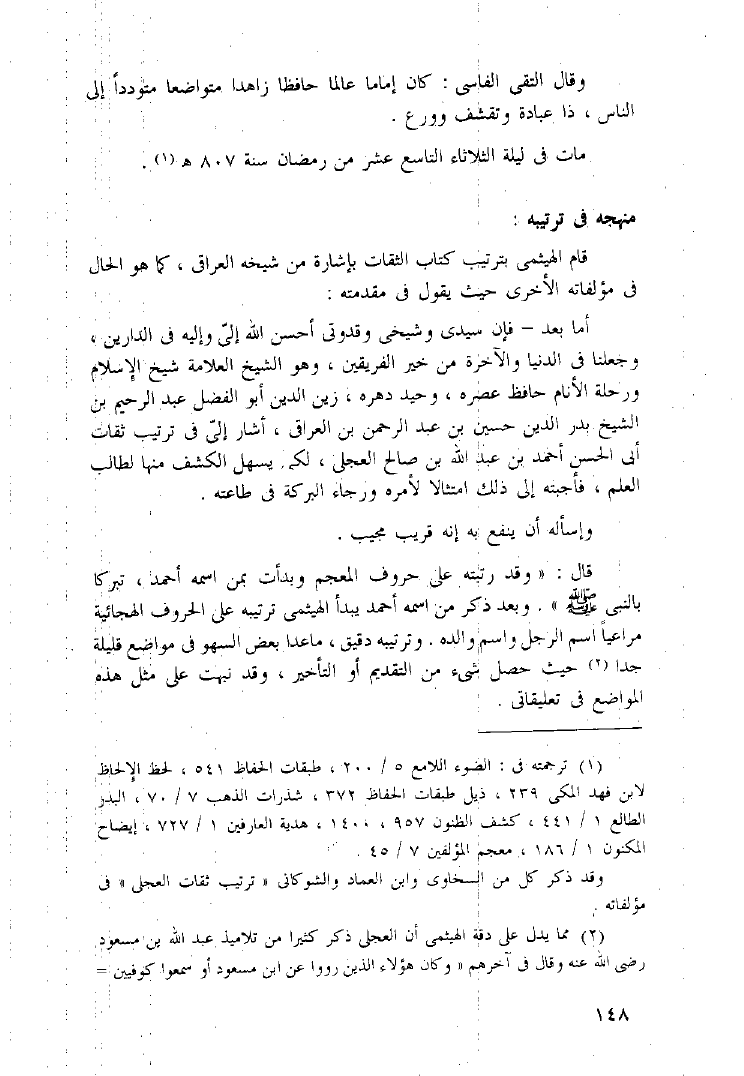 وقال التقى الفاسى : كان إماما عالما حافظا زاهدا متواضعا متودداً إلى
الناس ، ذا عبادة وتقشف وورع .
مات فى ليلة الثلاثاء التاسع عشر من رمضان سنة ٨٠٧ هـ (١) .
منهجه فى ترتيبه :
قام الهيثمى بترتيب كتاب الثقات بإشارة من شيخه العراقى ، كما هو الحال
فى مؤلفاته الأخرى حيث يقول فى مقدمته :
أما بعد – فإن سيدى وشيخى وقدوتى أحسن الله إلىّ وإليه فى الدارين ،
وجعلنا فى الدنيا والآخرة من خير الفريقين ، وهو الشيخ العلامة شيخ الإسلام
ورحلة الأنام حافظ عصره ، وحيد دهره ، زين الدين أبو الفضل عبد الرحيم بن
الشيخ بدر الدين حسين بن عبد الرحمن بن العراقى ، أشار إلىّ فى ترتيب ثقات
أبى الحسن أحمد بن عبد الله بن صالح العجلى ، لكى يسهل الكشف منها لطالب
العلم ، فأجبته إلى ذلك امتثالا لأمره ورجاء البركة فى طاعته .
وإسأله أن ينفع به إنه قريب مجيب .
قال : « وقد رتبته على حروف المعجم وبدأت بمن اسمه أحمد ، تبركا
بالنبى ﷺ » . وبعد ذكر من اسمه أحمد يبدأ الهيثمى ترتيبه على الحروف الهجائية
مراعياً اسم الرجل واسم والده . وترتيبه دقيق ، ماعدا بعض السهو فى مواضع قليلة
جدا (٢) حيث حصل شىء من التقديم أو التأخير ، وقد نبهت على مثل هذه
المواضع فى تعليقاتى .
(١) ترجمته فى : الضوء اللامع ٥ / ٢٠٠ ، طبقات الحفاظ ٥٤١ ، لحظ الإلحاظ
لابن فهد المكى ٢٣٩ ، ذيل طبقات الحفاظ ٣٧٢ ، شذرات الذهب ٧ / ٧٠ ، البدر
الطالع ١ / ٤٤١ ، كشف الظنون ٩٥٧ ، ١٤٠٠ ، هدية العارفين ١ / ٧٢٧ ، إيضاح
المكنون ١ / ١٨٦ ، معجم المؤلفين ٧ / ٤٥ .
وقد ذكر كل من السخاوى وابن العماد والشوكانى « ترتيب ثقات العجلى » فى
مؤلفاته .
(٢) مما يدل على دقة الهيثمى أن العجلى ذكر كثيرا من تلاميذ عبد الله بن مسعود
رضى الله عنه وقال فى آخرهم « وكان هؤلاء الذين رووا عن ابن مسعود أو سمعوا كوفيين =
١٤٨